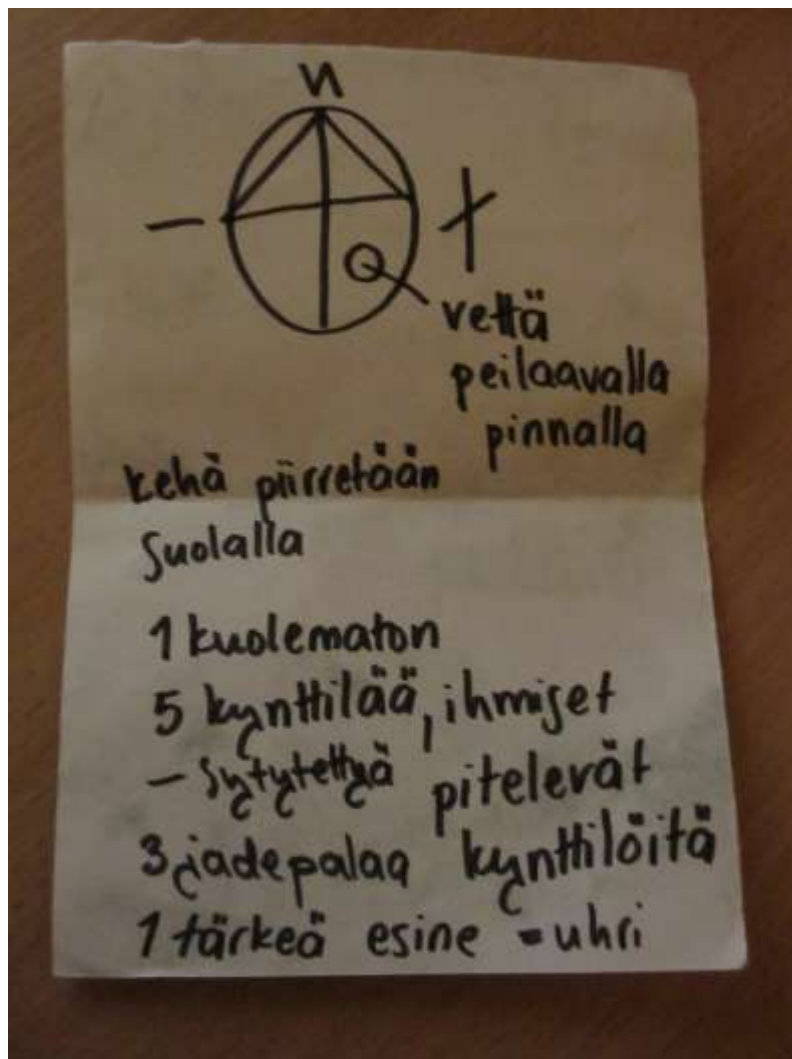 n
- +
vettä
peilaavalla
pinnalla
kehä piirretään
Suolalla
1 kuolematon
5 kynttilää, ihmiset
- Sytytettyä pitelevät
3 jadepalaa kynttilöitä
1 tärkeä esine = uhri